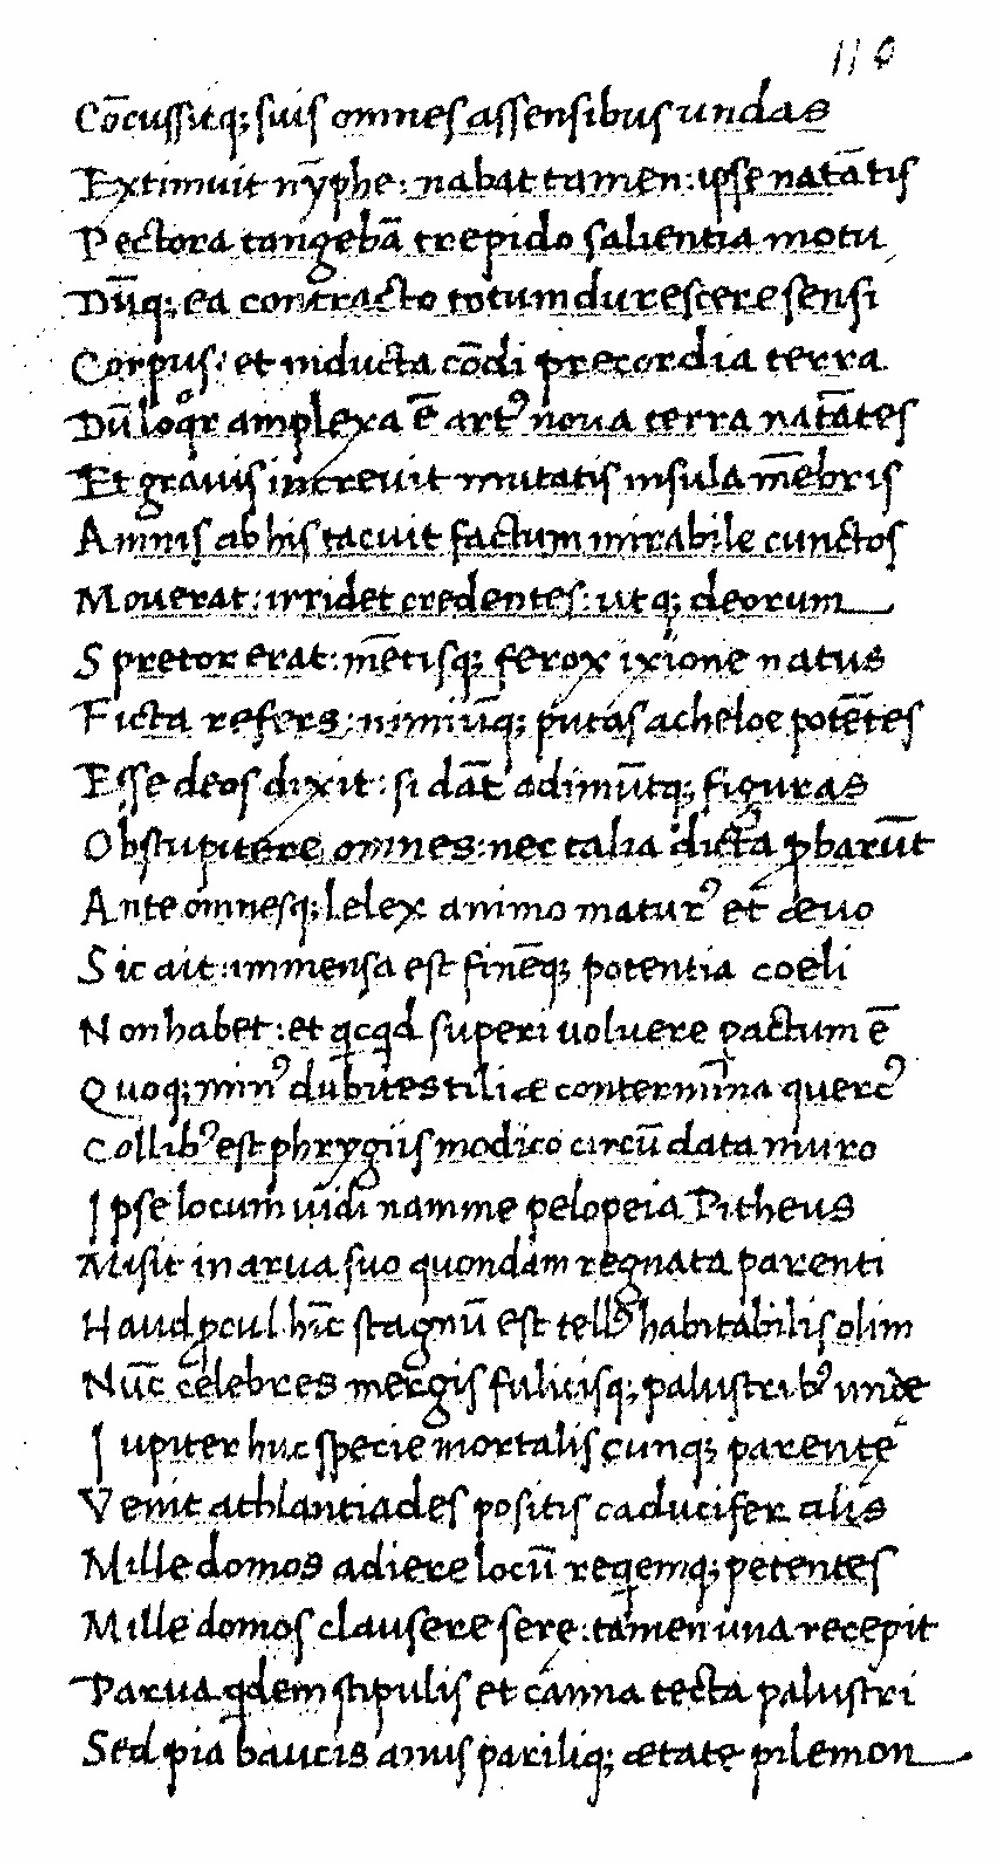 110
Cōcussitq; suis omnes assensibus undas
Extimuit nȳphe: nabat tamen: ipse natātis
Pectora tangebā trepido salientia motu
Dūq; ea contracto totum durescere sensi
Corpus: et inducta cōdi precordia terra
Dū loqͦr amplexa ē artꝰ noua terra natātes
Et grauis increuit mutatis insula mēbris
Amnis ab his tacuit factum mirabile cunctos
Mouerat: irridet credentes: utq; deorum
Spretor erat: mētisq; ferox ixione natus
Ficta refers: nimiūq; putas acheloe potētes
Esse deos dixit: si dāt adimūtq; figuras
Obstupuere omnes: nec talia dicta ꝓbarūt
Ante omnesq; lelex animo maturꝰ et æuo
Sic ait: immensa est finēq; potentia coeli
Non habet: et qcqd superi voluere pactum ē
Quoq; minꝰ dubites tiliæ contermina quercꝰ
Collibꝰ est phrygiis modico circū data muro
Ipse locum uidi nam me pelopeia Pitheus
Misit in arua suo quondam regnata parenti
Haud ꝓcul hīc stagnū est tellꝰ habitabilis olim
Nūc celebres mergis fulicisq; palustribꝰ unde
Iupiter huc specie mortalis cunq; parente
Venit athlantiades positis caducifer alis
Mille domos adiere locū reqemq; petentes
Mille domos clausere sere: tamen una recepit
Parua qdem stipulis et canna tecta palustri
Sed pia baucis anus pariliq; ætate pilemon